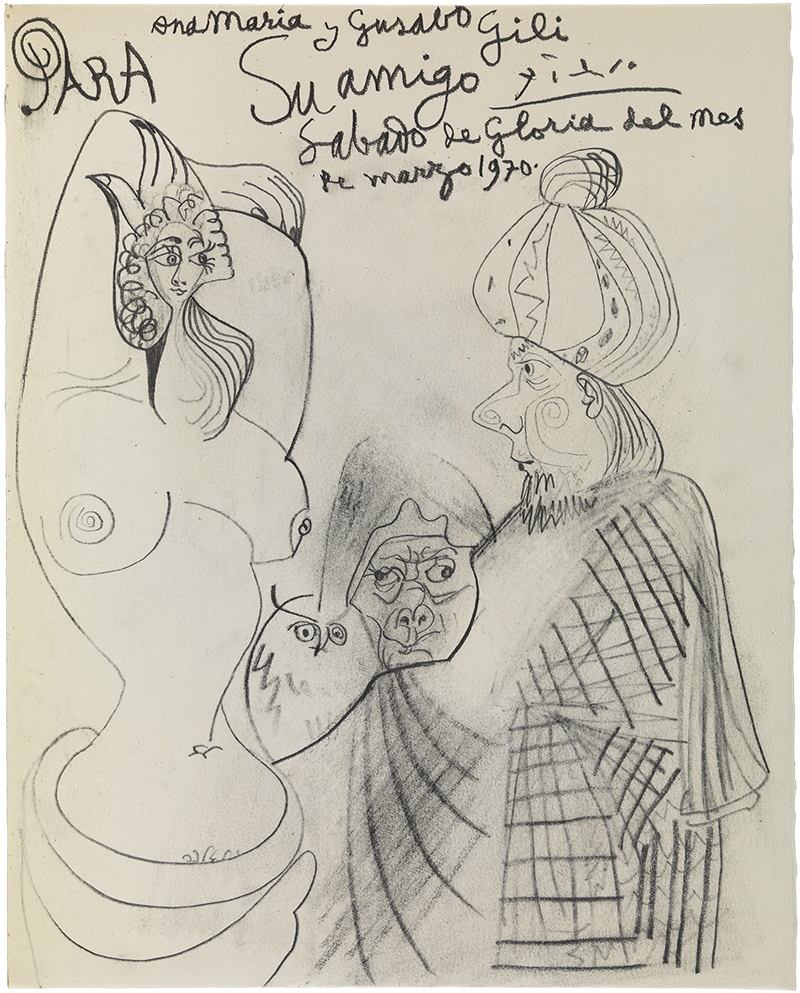 PARA
ana Maria y Gusabo Gili
Su amigo
Sabado de Gloria del mes
de marzo 1970.